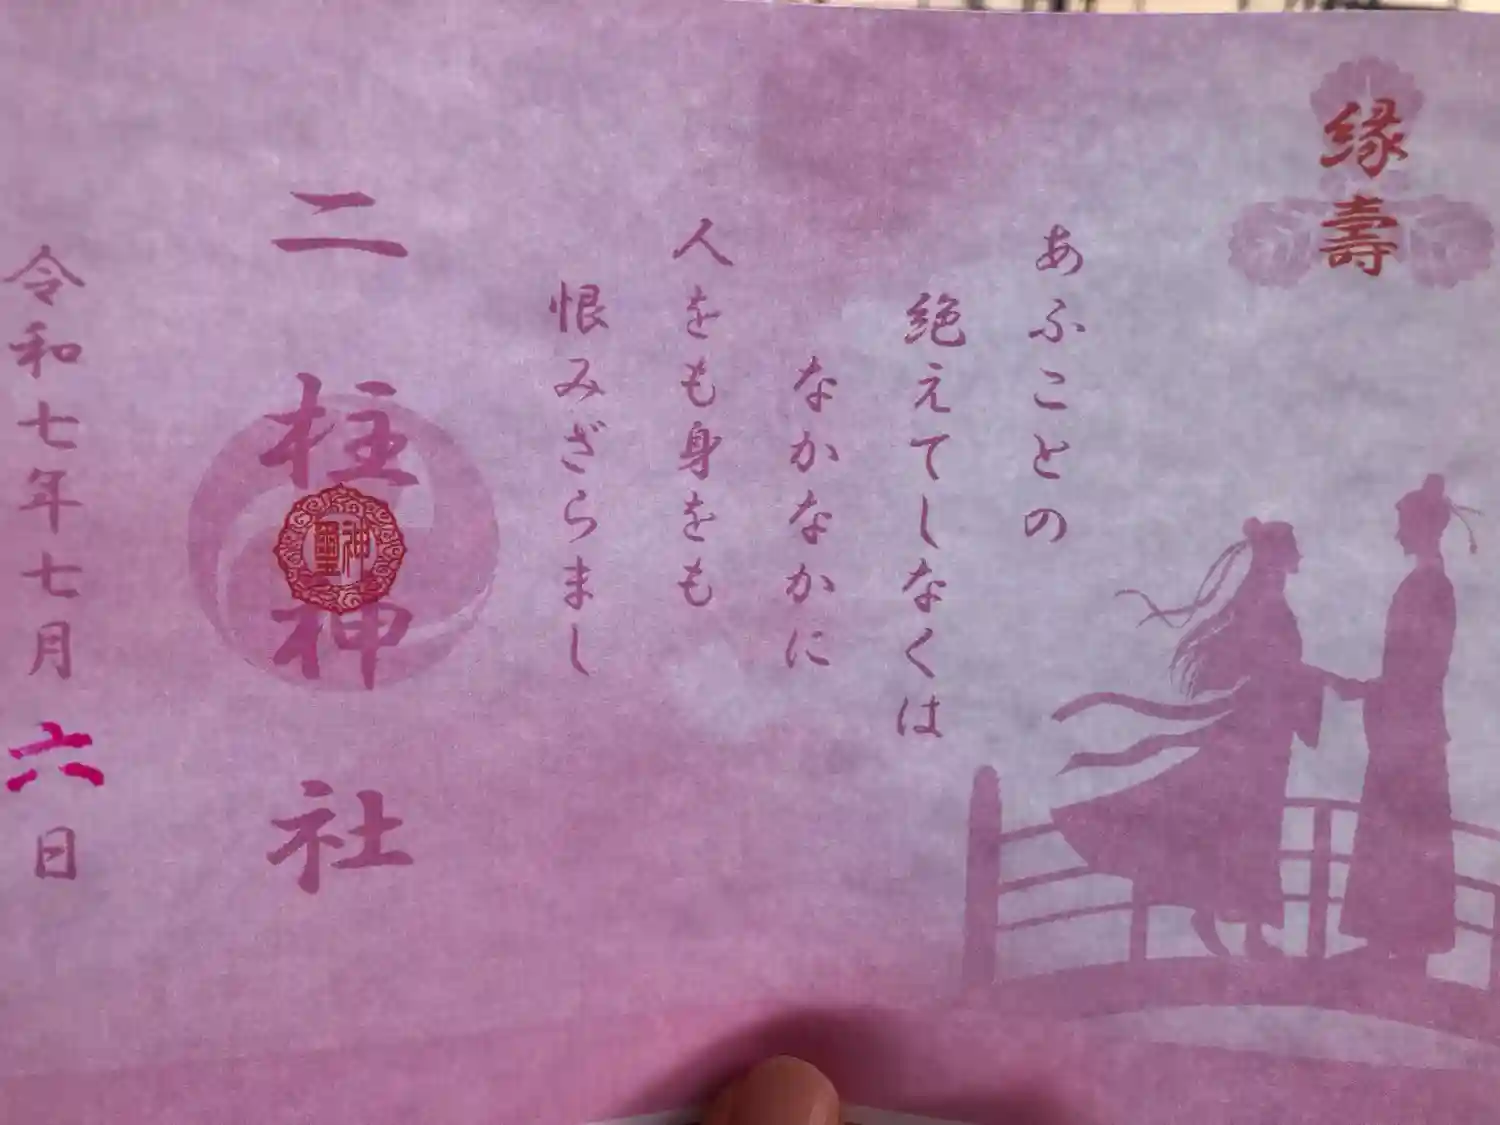 縁壽
あふことの
絶えてしなくは
なかなかに
人をも身をも
恨みざらまし
二柱神社
神璽
令和七年七月六日